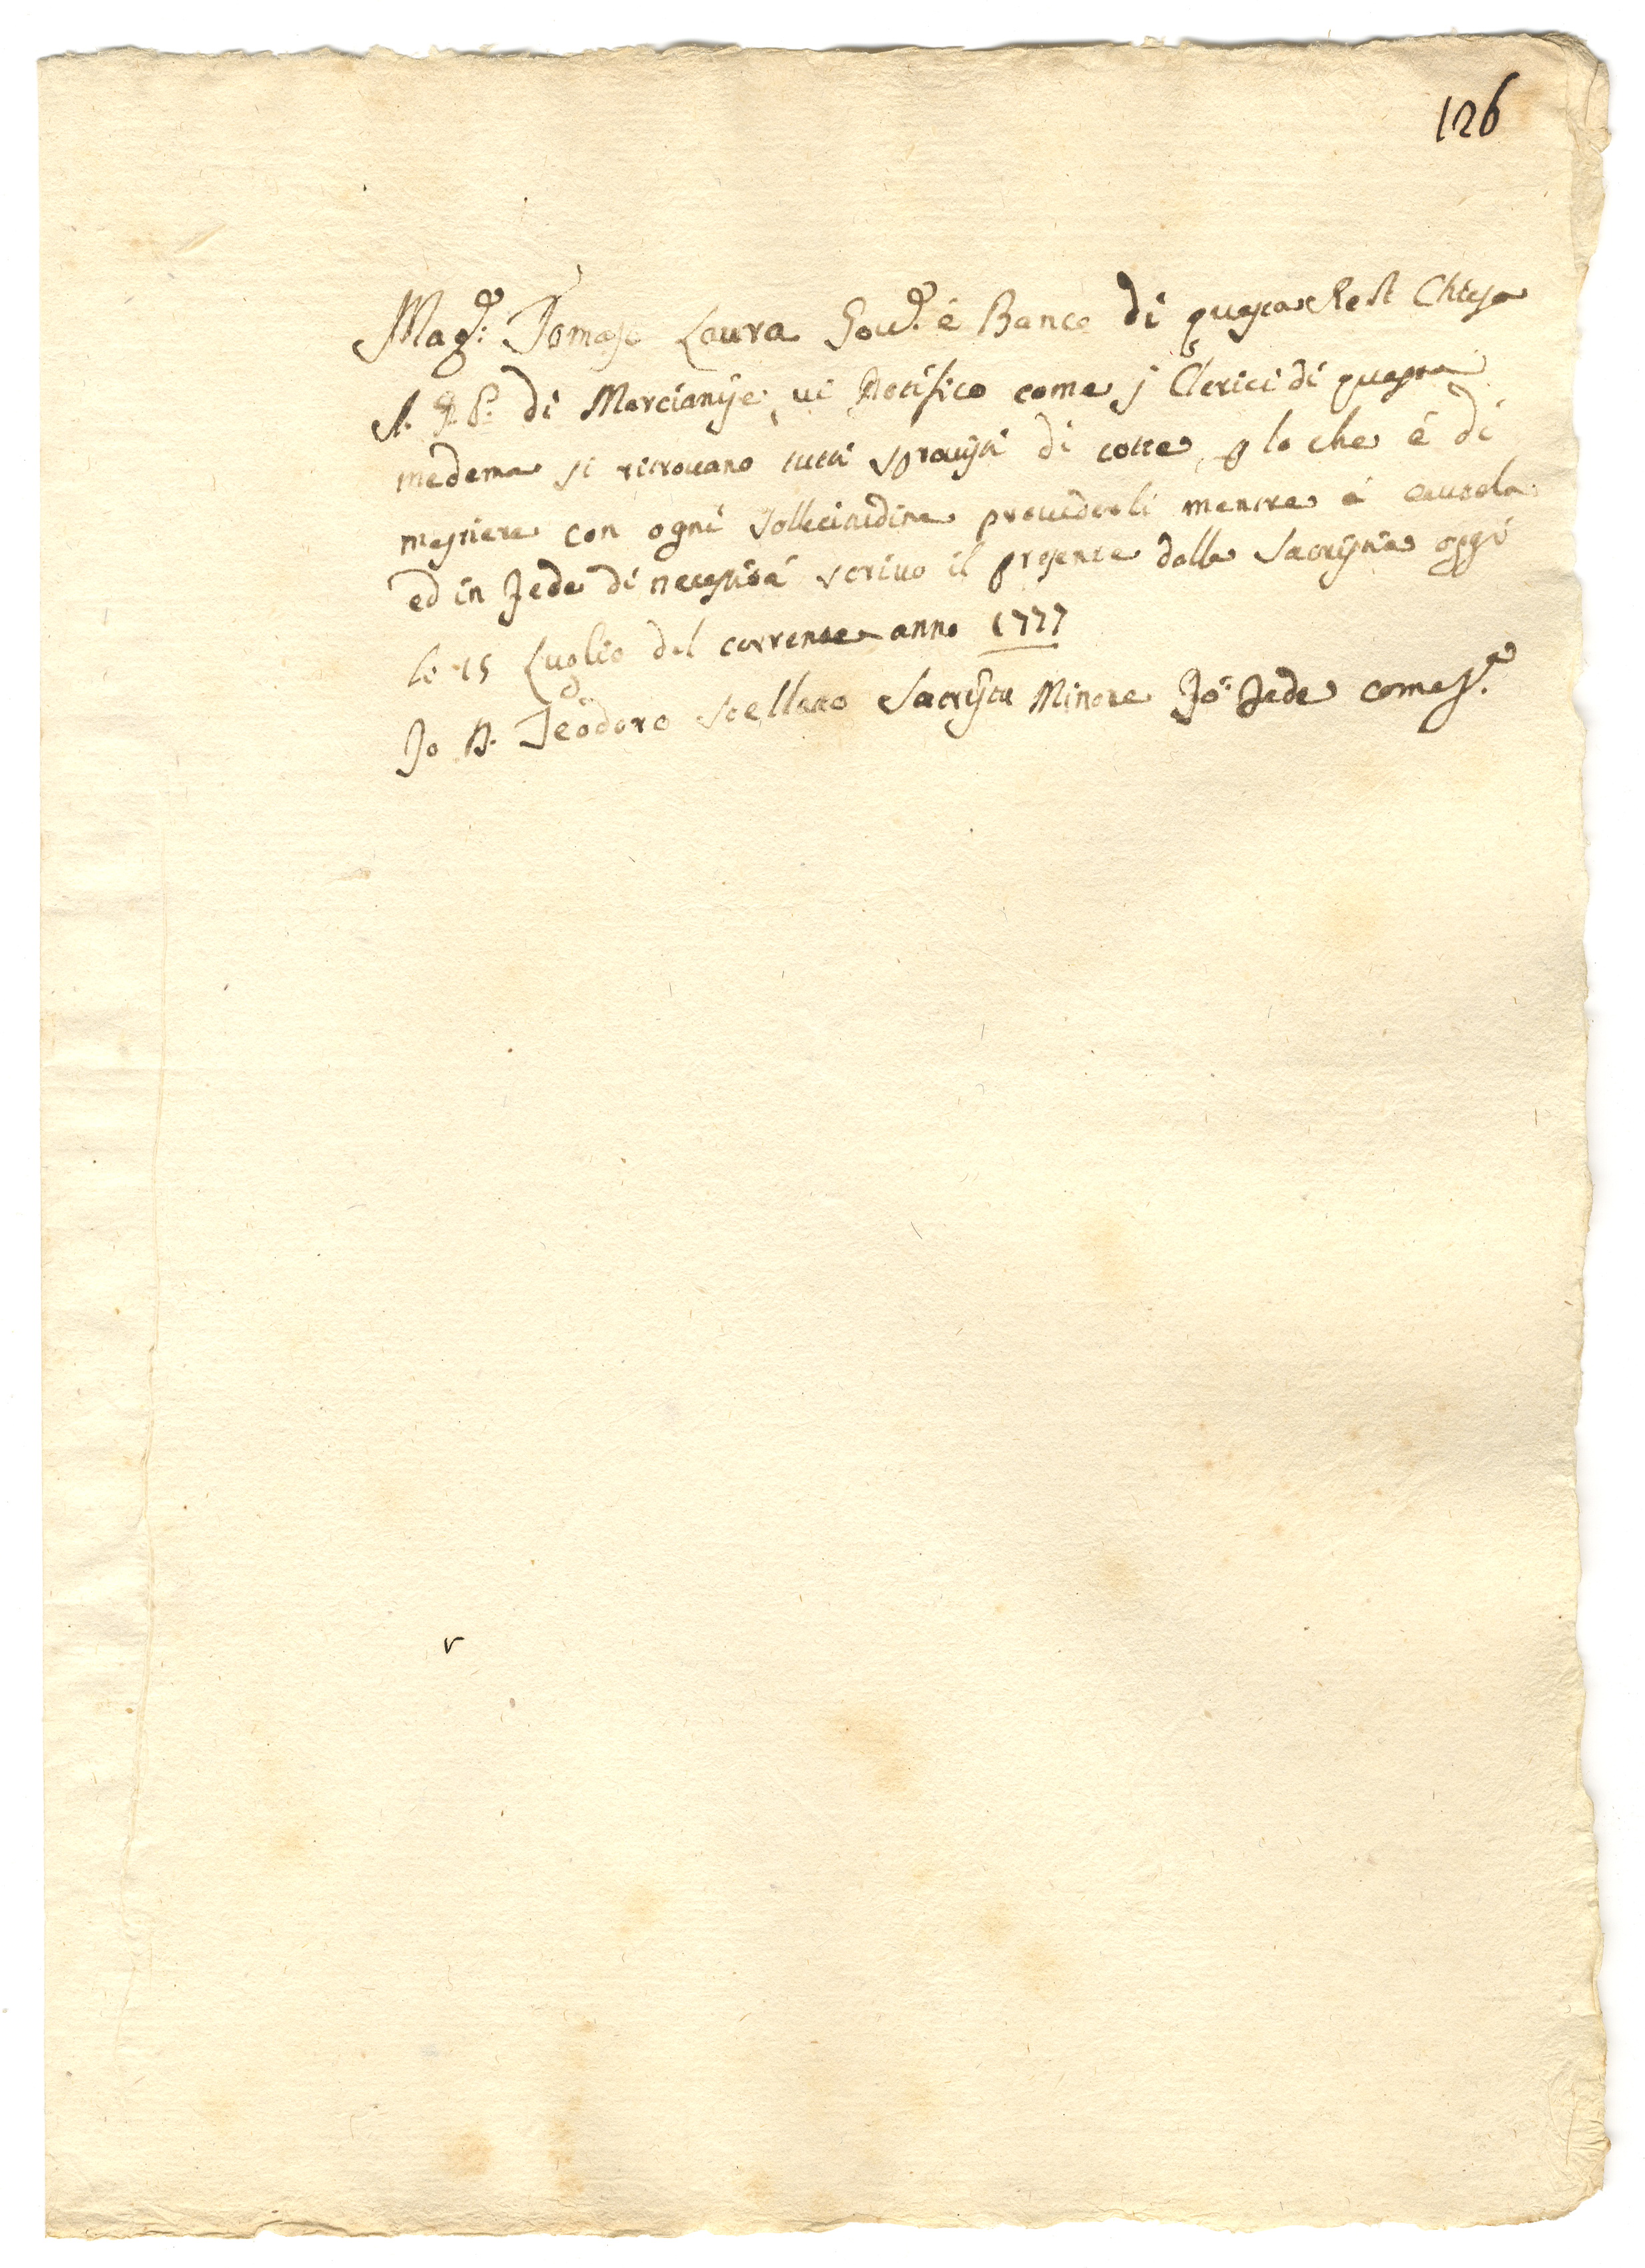 126
Mag.co Tomaso Laura Gov.e é Bance di questa Rest Chiesa
A. G. P. di Marcianise vi Notifico come j Clerici di questa
medema si ritrovano tutti sprovisti di cotte, p lo che é di
mestiere con ogni sollecitudine provederli mentre á cautela
ed in fede di necessitá scrivo il presente dalla Sacristia oggi
li 15 Luglio del corrente anno 1777
Io D. Teodoro Stellato Sacrista Minore fó fede come S.a